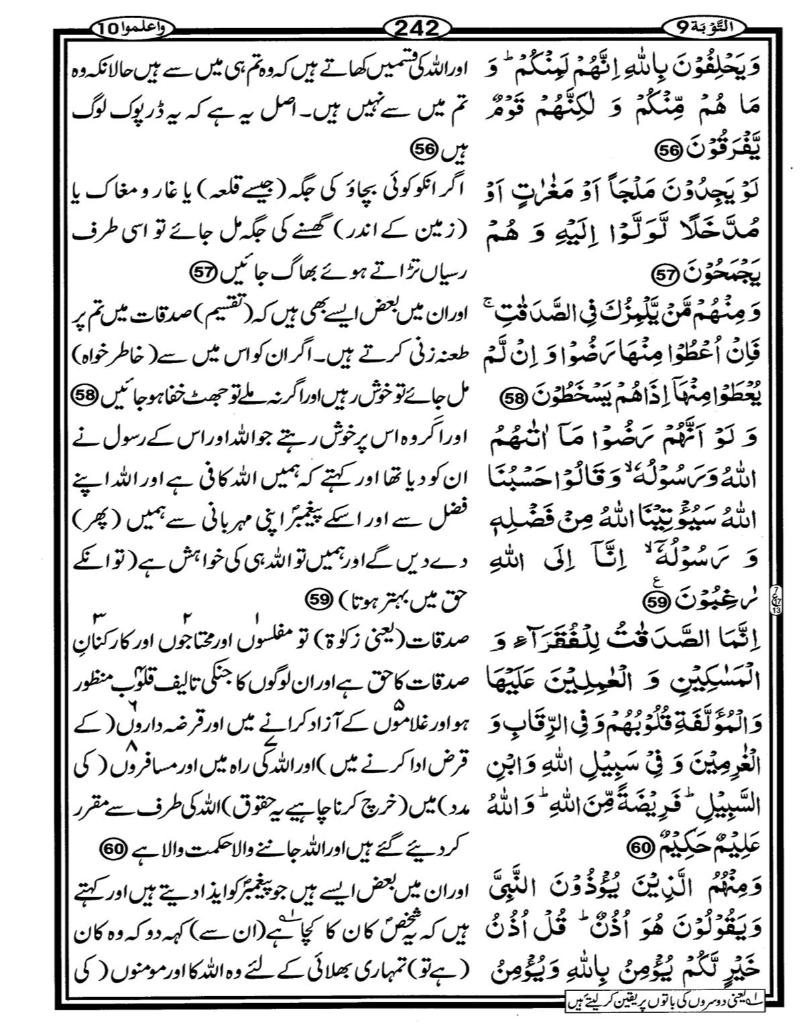 التَّوْبَة 9
242
واعلموا 10
وَيَحْلِفُوْنَ بِاللّٰهِ اِنَّهُمْ لَمِنْكُمْ ؕ وَ
مَا هُمْ مِّنْكُمْ وَ لٰكِنَّهُمْ قَوْمٌ
يَّفْرَقُوْنَ 56
لَوْ يَجِدُوْنَ مَلْجَاً اَوْ مَغٰرٰتٍ اَوْ
مُدَّخَلًا لَّوَلَّوْا اِلَيْهِ وَ هُمْ
يَجْمَحُوْنَ 57
وَمِنْهُمْ مَّنْ يَّلْمِزُكَ فِى الصَّدَقٰتِ ۚ
فَاِنْ اُعْطُوْا مِنْهَا رَضُوْا وَ اِنْ لَّمْ
يُعْطَوْا مِنْهَاۤ اِذَا هُمْ يَسْخَطُوْنَ 58
وَ لَوْ اَنَّهُمْ رَضُوْا مَاۤ اٰتٰىهُمُ
اللّٰهُ وَرَسُوْلُهٗ ۙ وَ قَالُوْا حَسْبُنَا
اللّٰهُ سَيُؤْتِيْنَا اللّٰهُ مِنْ فَضْلِهٖ
وَ رَسُوْلُهٗۤ ۙ اِنَّاۤ اِلَى اللّٰهِ
رٰغِبُوْنَ 59 ع
اِنَّمَا الصَّدَقٰتُ لِلْفُقَرَآءِ وَ
الْمَسٰكِيْنِ وَ الْعٰمِلِيْنَ عَلَيْهَا
وَالْمُؤَلَّفَةِ قُلُوْبُهُمْ وَ فِى الرِّقَابِ وَ
الْغٰرِمِيْنَ وَ فِىْ سَبِيْلِ اللّٰهِ وَابْنِ
السَّبِيْلِ ؕ فَرِيْضَةً مِّنَ اللّٰهِ ؕ وَ اللّٰهُ
عَلِيْمٌ حَكِيْمٌ 60
وَمِنْهُمُ الَّذِيْنَ يُؤْذُوْنَ النَّبِىَّ
وَيَقُوْلُوْنَ هُوَ اُذُنٌ ؕ قُلْ اُذُنُ
خَيْرٍ لَّكُمْ يُؤْمِنُ بِاللّٰهِ وَيُؤْمِنُ
اور اللہ کی قسمیں کھاتے ہیں کہ وہ تم ہی میں سے ہیں حالانکہ وہ
تم میں سے نہیں ہیں۔ اصل یہ ہے کہ یہ ڈرپوک لوگ
ہیں 56
اگر انکو کوئی بچاؤ کی جگہ (جیسے قلعہ) یا غار و مغاک یا
(زمین کے اندر) گھسنے کی جگہ مل جائے تو اسی طرف
رسیاں تڑاتے ہوئے بھاگ جائیں 57
اور ان میں بعض ایسے بھی ہیں کہ (تقسیم) صدقات میں تم پر
طعنہ زنی کرتے ہیں۔ اگر ان کو اس میں سے (خاطر خواہ)
مل جائے تو خوش رہیں اور اگر نہ ملے تو جھٹ خفا ہو جائیں 58
اور اگر وہ اس پر خوش رہتے جو اللہ اور اس کے رسول نے
ان کو دیا تھا اور کہتے کہ ہمیں اللہ کافی ہے اور اللہ اپنے
فضل سے اور اسکے پیغمبرؐ اپنی مہربانی سے ہمیں (پھر)
دے دیں گے اور ہمیں تو اللہ ہی کی خواہش ہے (تو انکے
حق میں بہتر ہوتا) 59
صدقات (یعنی زکوٰة) تو مفلسوں۱ اور محتاجوں۲ اور کارکنان۳
صدقات کا حق ہے اور ان لوگوں کا جنکی تالیف قلوب۴ منظور
ہو اور غلاموں۵ کے آزاد کرانے میں اور قرضداروں۶ (کے
قرض ادا کرنے میں) اور اللہ کی راہ۷ میں اور مسافروں۸ (کی
مدد) میں (خرچ کرنا چاہیے یہ حقوق) اللہ کی طرف سے مقرر
کر دیئے گئے ہیں اور اللہ جاننے والا حکمت والا ہے 60
اور ان میں بعض ایسے ہیں جو پیغمبرؐ کو ایذا دیتے ہیں اور کہتے
ہیں کہ یہ شخص کان کا کچا۱ ہے (ان سے) کہہ دو کہ وہ کان
(ہے تو) تمہاری بھلائی کے لئے وہ اللہ کا اور مومنوں (کی
۱ یعنی دوسروں کی باتوں پر یقین کر لیتے ہیں